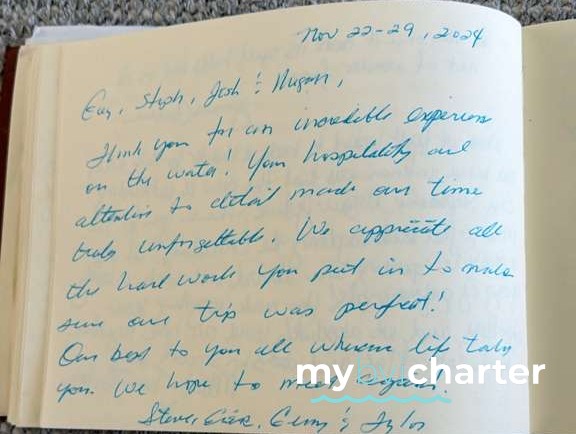 Nov 22-29, 2024
Guy, Steph, Josh & Megan,
Thank you for an incredible experience
on the water! Your hospitality and
attention to detail made our time
truly unforgettable. We appreciate all
the hard work you put in to make
sure our trip was perfect!
Our best to you all wherever life takes
you. We hope to meet again!
my charter
Steve, &